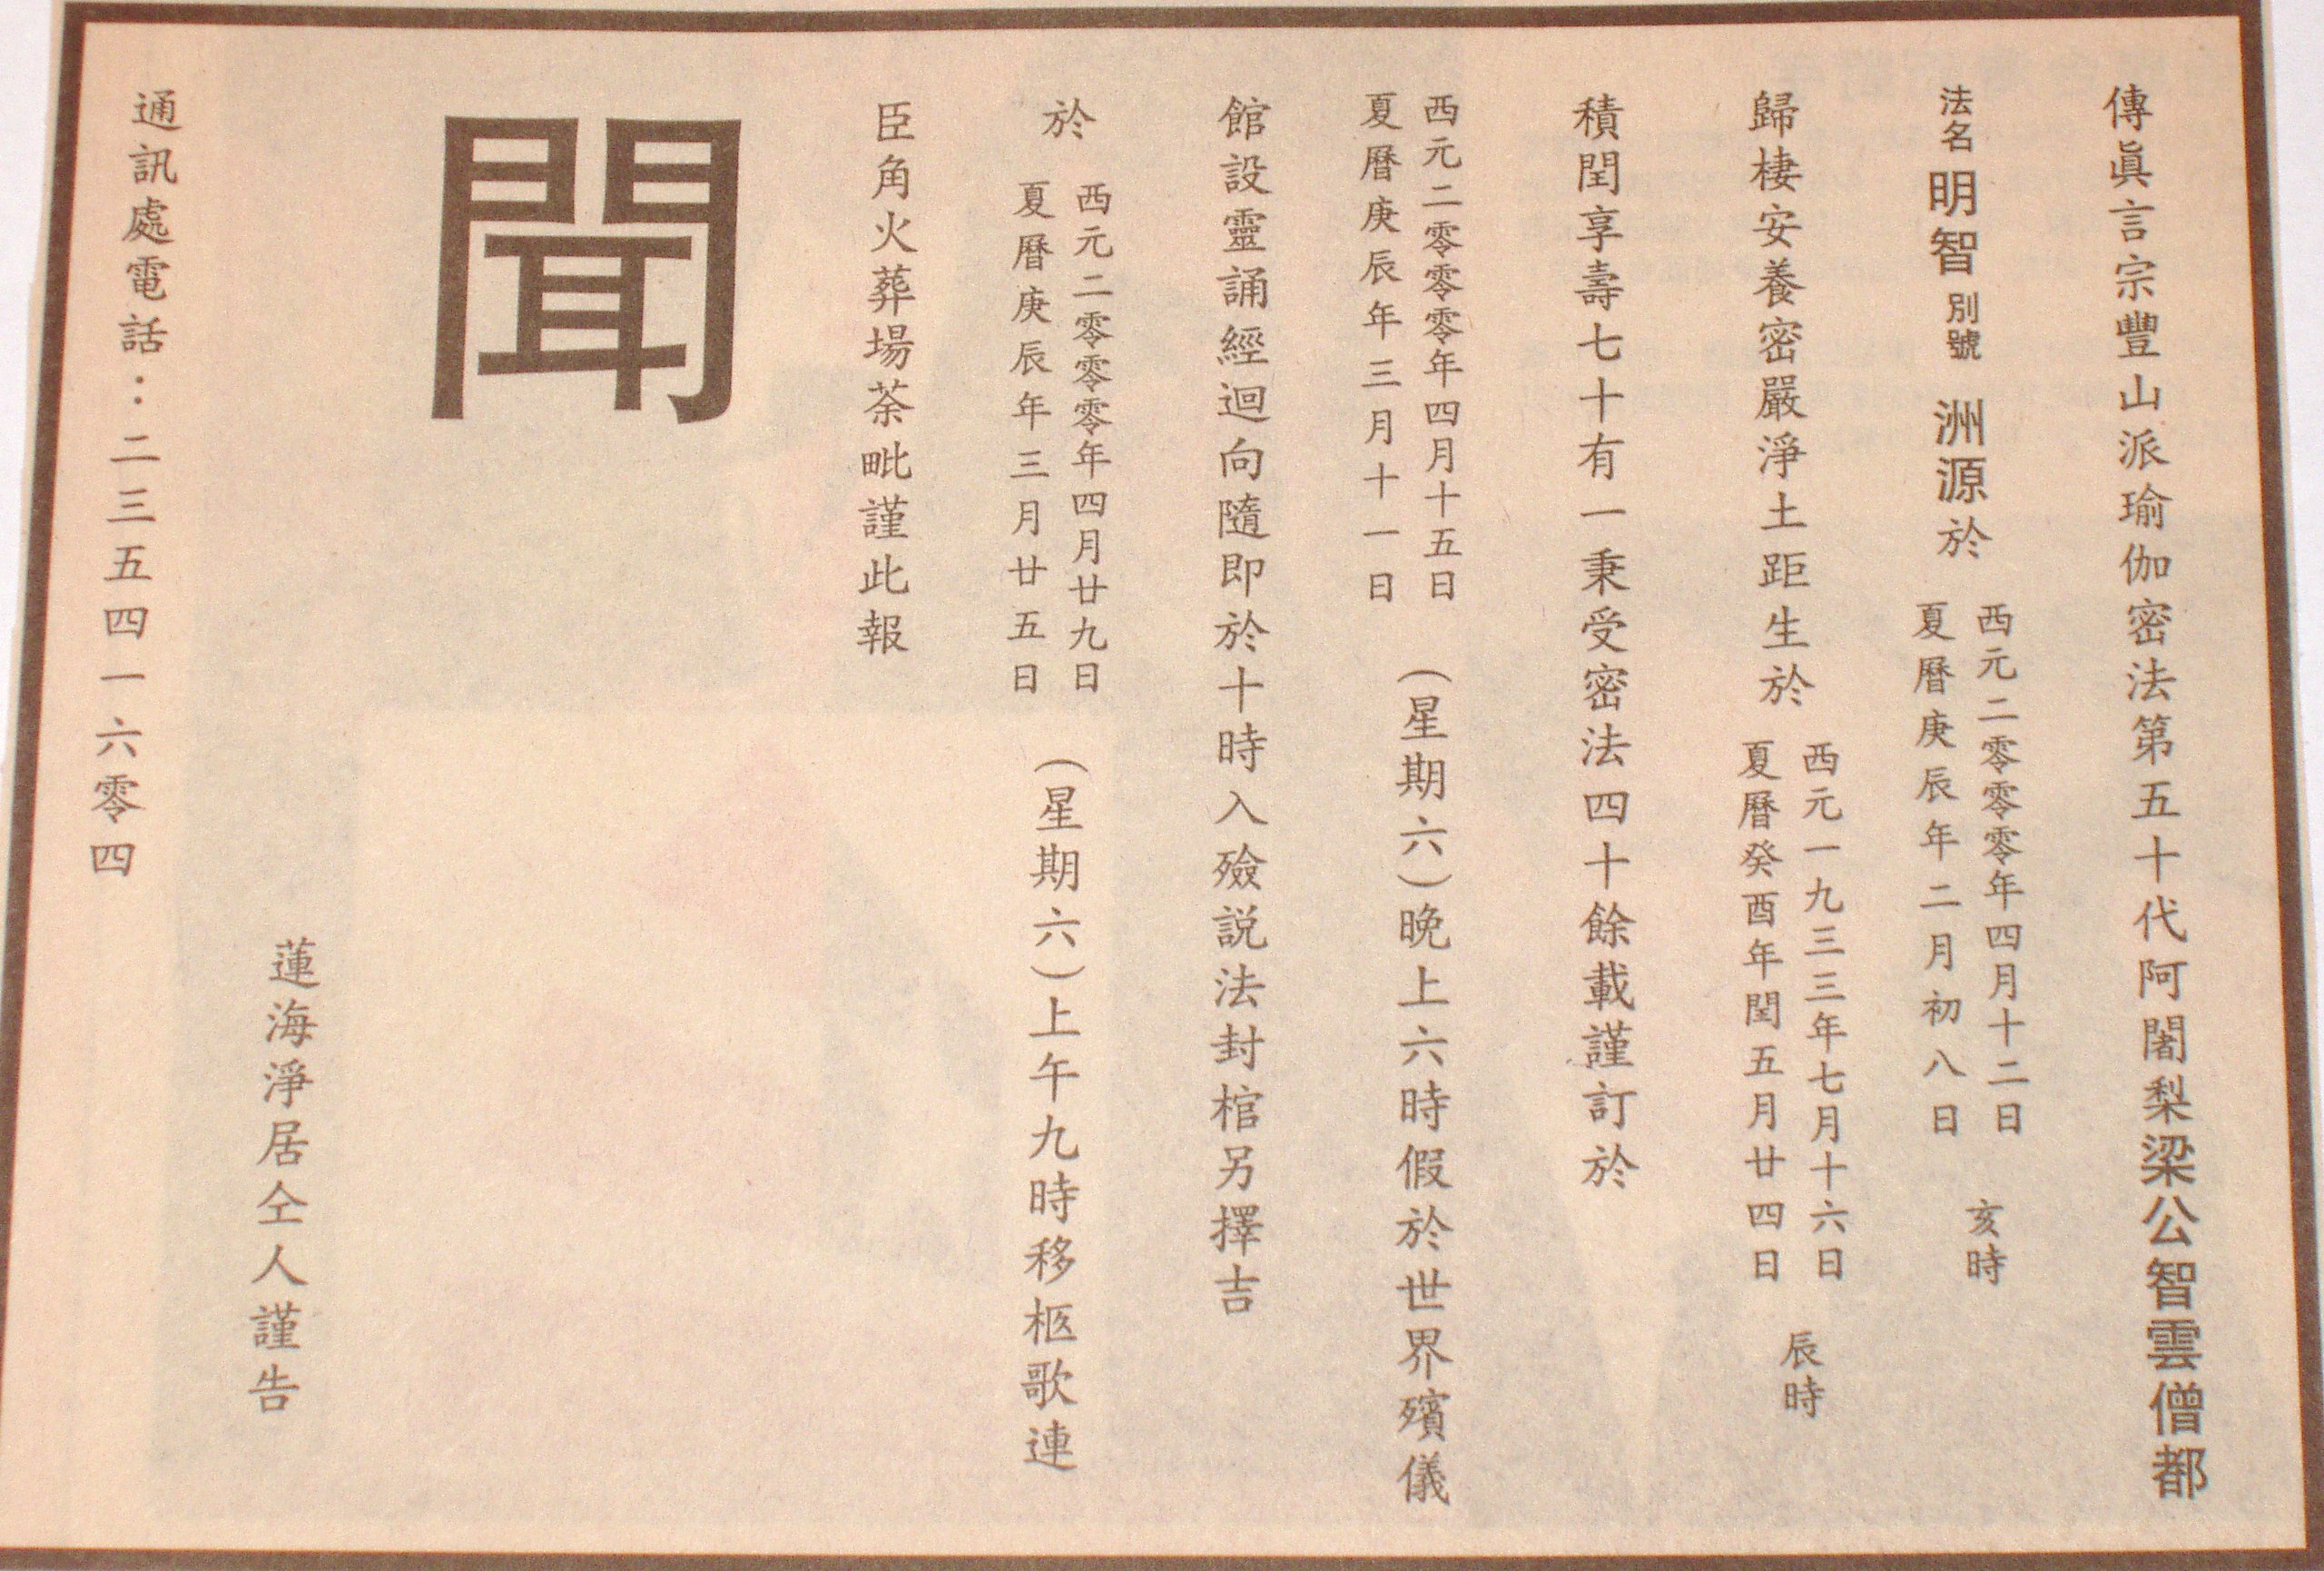 傳眞言宗豐山派瑜伽密法第五十代阿闍梨梁公智雲僧都
法名明智別號洲源於西元二零零零年四月十二日夏曆庚辰年二月初八日亥時
歸棲安養密嚴淨土距生於西元一九三三年七月十六日夏曆癸酉年閏五月廿四日辰時
積閏享壽七十有一秉受密法四十餘載謹訂於
西元二零零零年四月十五日夏曆庚辰年三月十一日(星期六)晚上六時假於世界殯儀
館設靈誦經迴向隨即於十時入殮説法封棺另擇吉
於西元二零零零年四月廿九日夏曆庚辰年三月廿五日(星期六)上午九時移柩歌連
臣角火葬場荼毗謹此報
聞
蓮海淨居仝人謹告
通訊處電話：二三五四一六零四